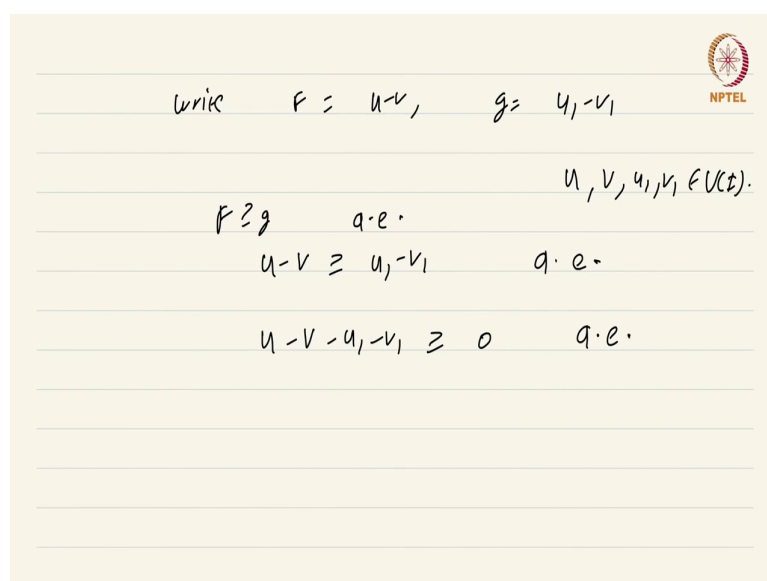 NPTEL
write F = u-v, g = u₁-v₁
u, v, u₁, v₁ ∈ U(I).
F ≥ g a.e.
u-v ≥ u₁-v₁ a.e.
u-v-u₁-v₁ ≥ 0 a.e.